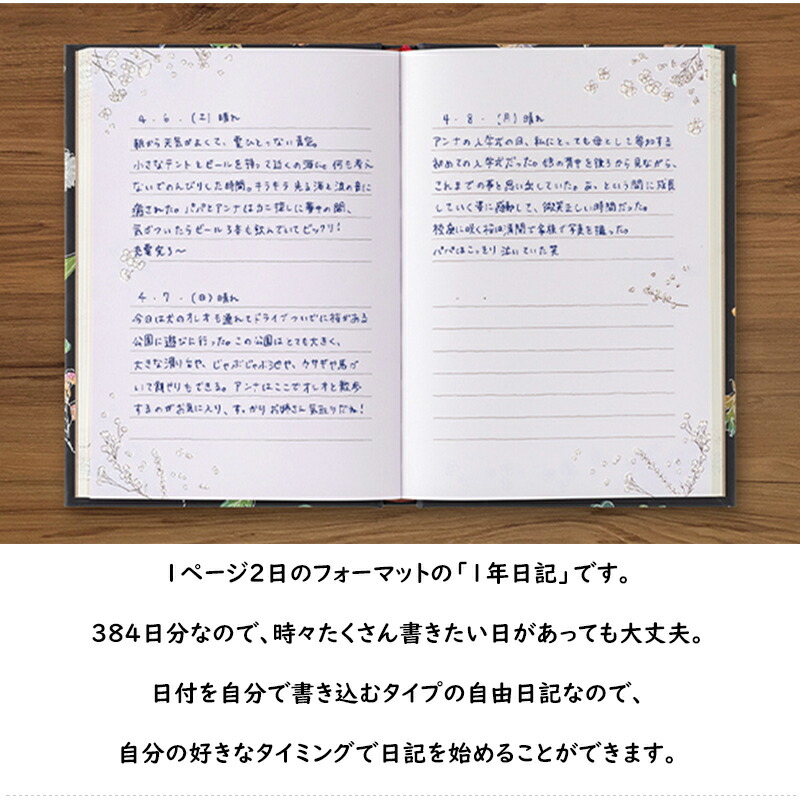 4.6.(土)晴れ
朝から天気がよくて、雲ひとつない青空。
小さなテントとビールを持って近くの海に。何も考え
ないでのんびりした時間。キラキラ光る海と波の音に
癒された。パパとアンナはカニ探しに夢中の間、
気がついたらビール3本も飲んでいてビックリ!
充電完了〜
4.7.(日)晴れ
今日は犬のオレオも連れてドライブついでに桜がある
公園に遊びに行った。この公園はとても大きく、
大きな滑り台や、じゃぶじゃぶ池や、ウサギや馬が
いて餌やりもできる。アンナはここでオレオと散歩
するのがお気に入り、すっかりお姉さん気取りだね!
4.8.(月)晴れ
アンナの入学式の日、私にとっても母として参加する
初めての入学式だった。娘の背中を後ろから見ながら、
これまでの事を思い出していた。あっという間に成長
していく事に感動して、微笑ましい時間だった。
校庭に咲く桜は満開で家族で写真を撮った。
パパはこっそり泣いていた笑
1ページ2日のフォーマットの「1年日記」です。
384日分なので、時々たくさん書きたい日があっても大丈夫。
日付を自分で書き込むタイプの自由日記なので、
自分の好きなタイミングで日記を始めることができます。